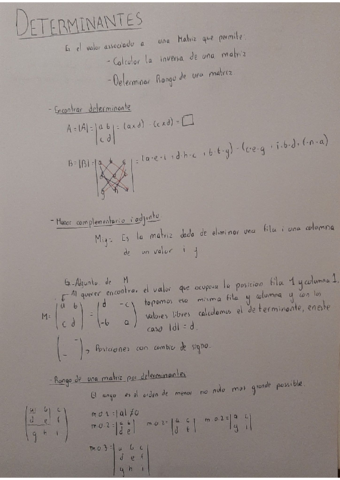 DETERMINANTES
Es el valor associado a una Matriz que permite
- Calcular la inversa de una matriz
- Determinar Rango de una matriz
- Encontrar determinante
A = |A| = |a b| = (a×d) - (c×d) = □
|c d|
B = |B| =
- Menor complementario i adjunto
Mij: Es la matriz dada de eliminar una fila i una columna
de un valor i, j
Adjunto de M
Al querer encontrar el valor que ocuparia la posicion fila 1 y columna 1,
M: (a b) = (d -c) taparemos esa misma fila y columna y con los
(c d) (-b a) valores libres calculamos el determinante, en este
caso |d| = d.
( - )
( - ) → Posiciones con cambio de signo
- Rango de una matriz por determinantes
El rango es el orden de menor no nulo mas grande possible.
|a b c| mo1: |a| ≠ 0
|d e f| mo2: |a b| mo2: |a c|
|g h i| |d e| |g i|
mo3: |a b c|
|d e f|
|g h i|